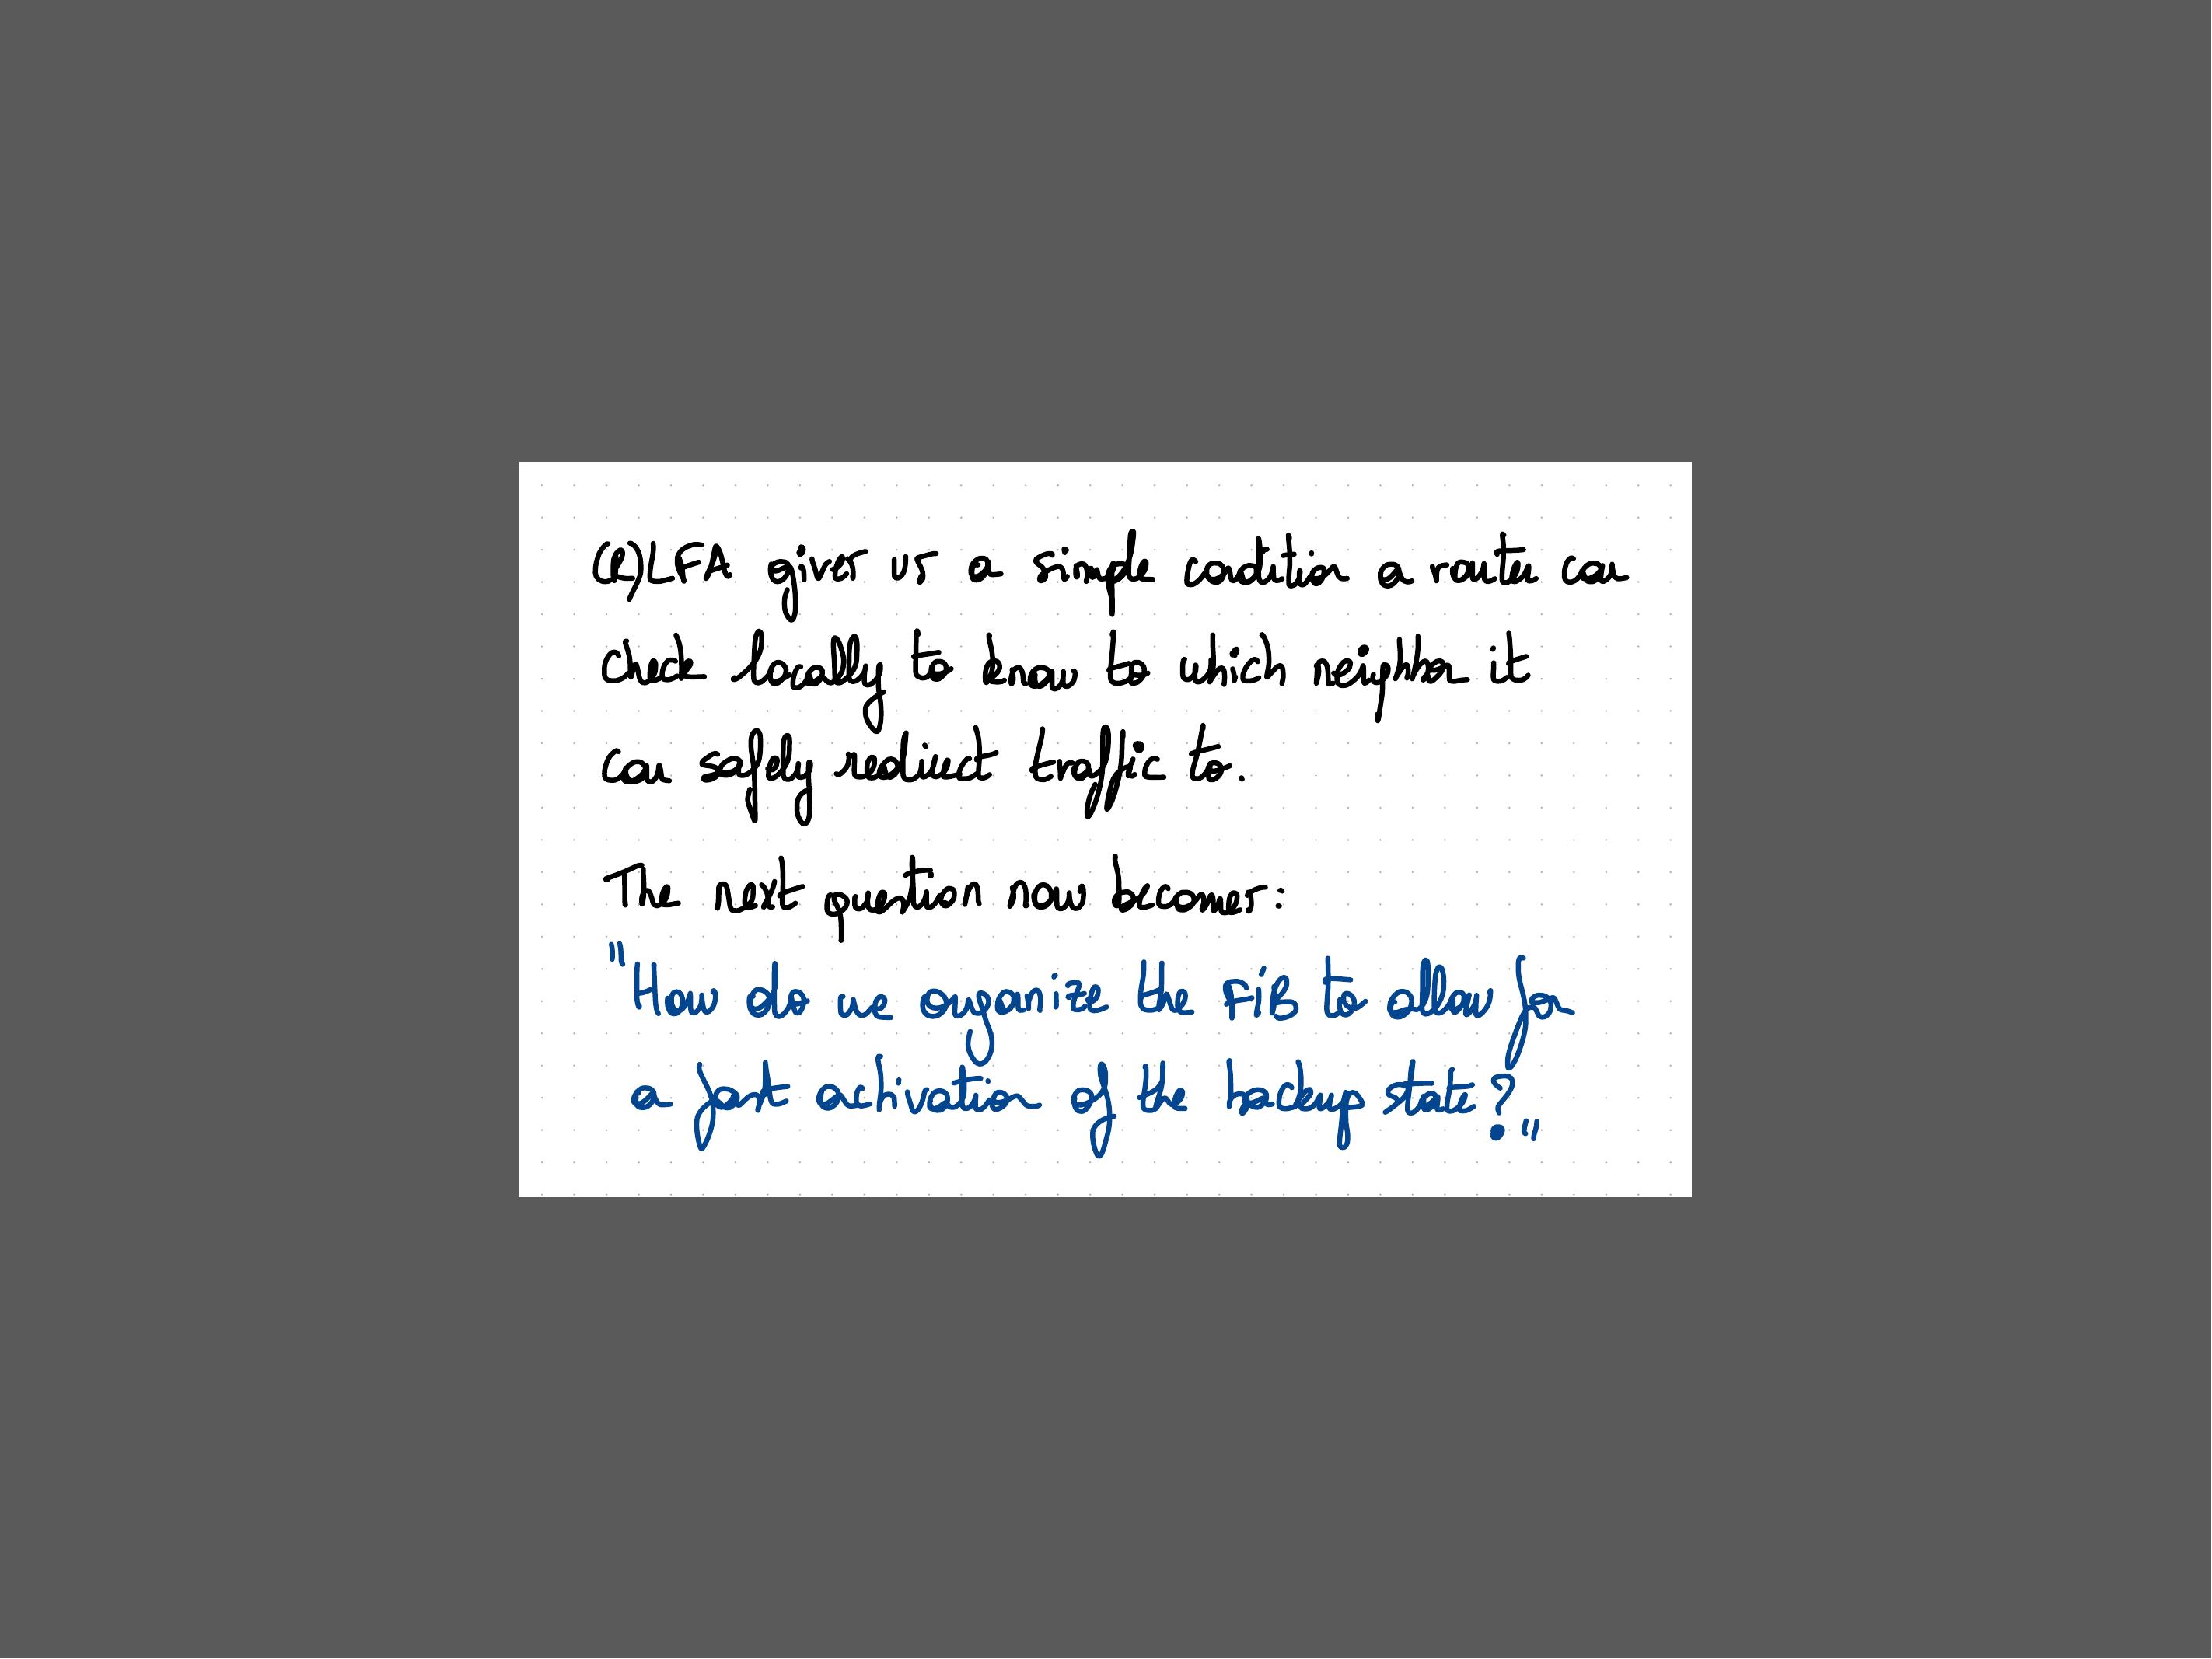 (e)LFA gives us a simple condition a router can
check locally to know to which neighbor it
can safely redirect traffic to.
The next question now becomes:
"How do we organize the FIB to allow for
a fast activation of the backup state?"